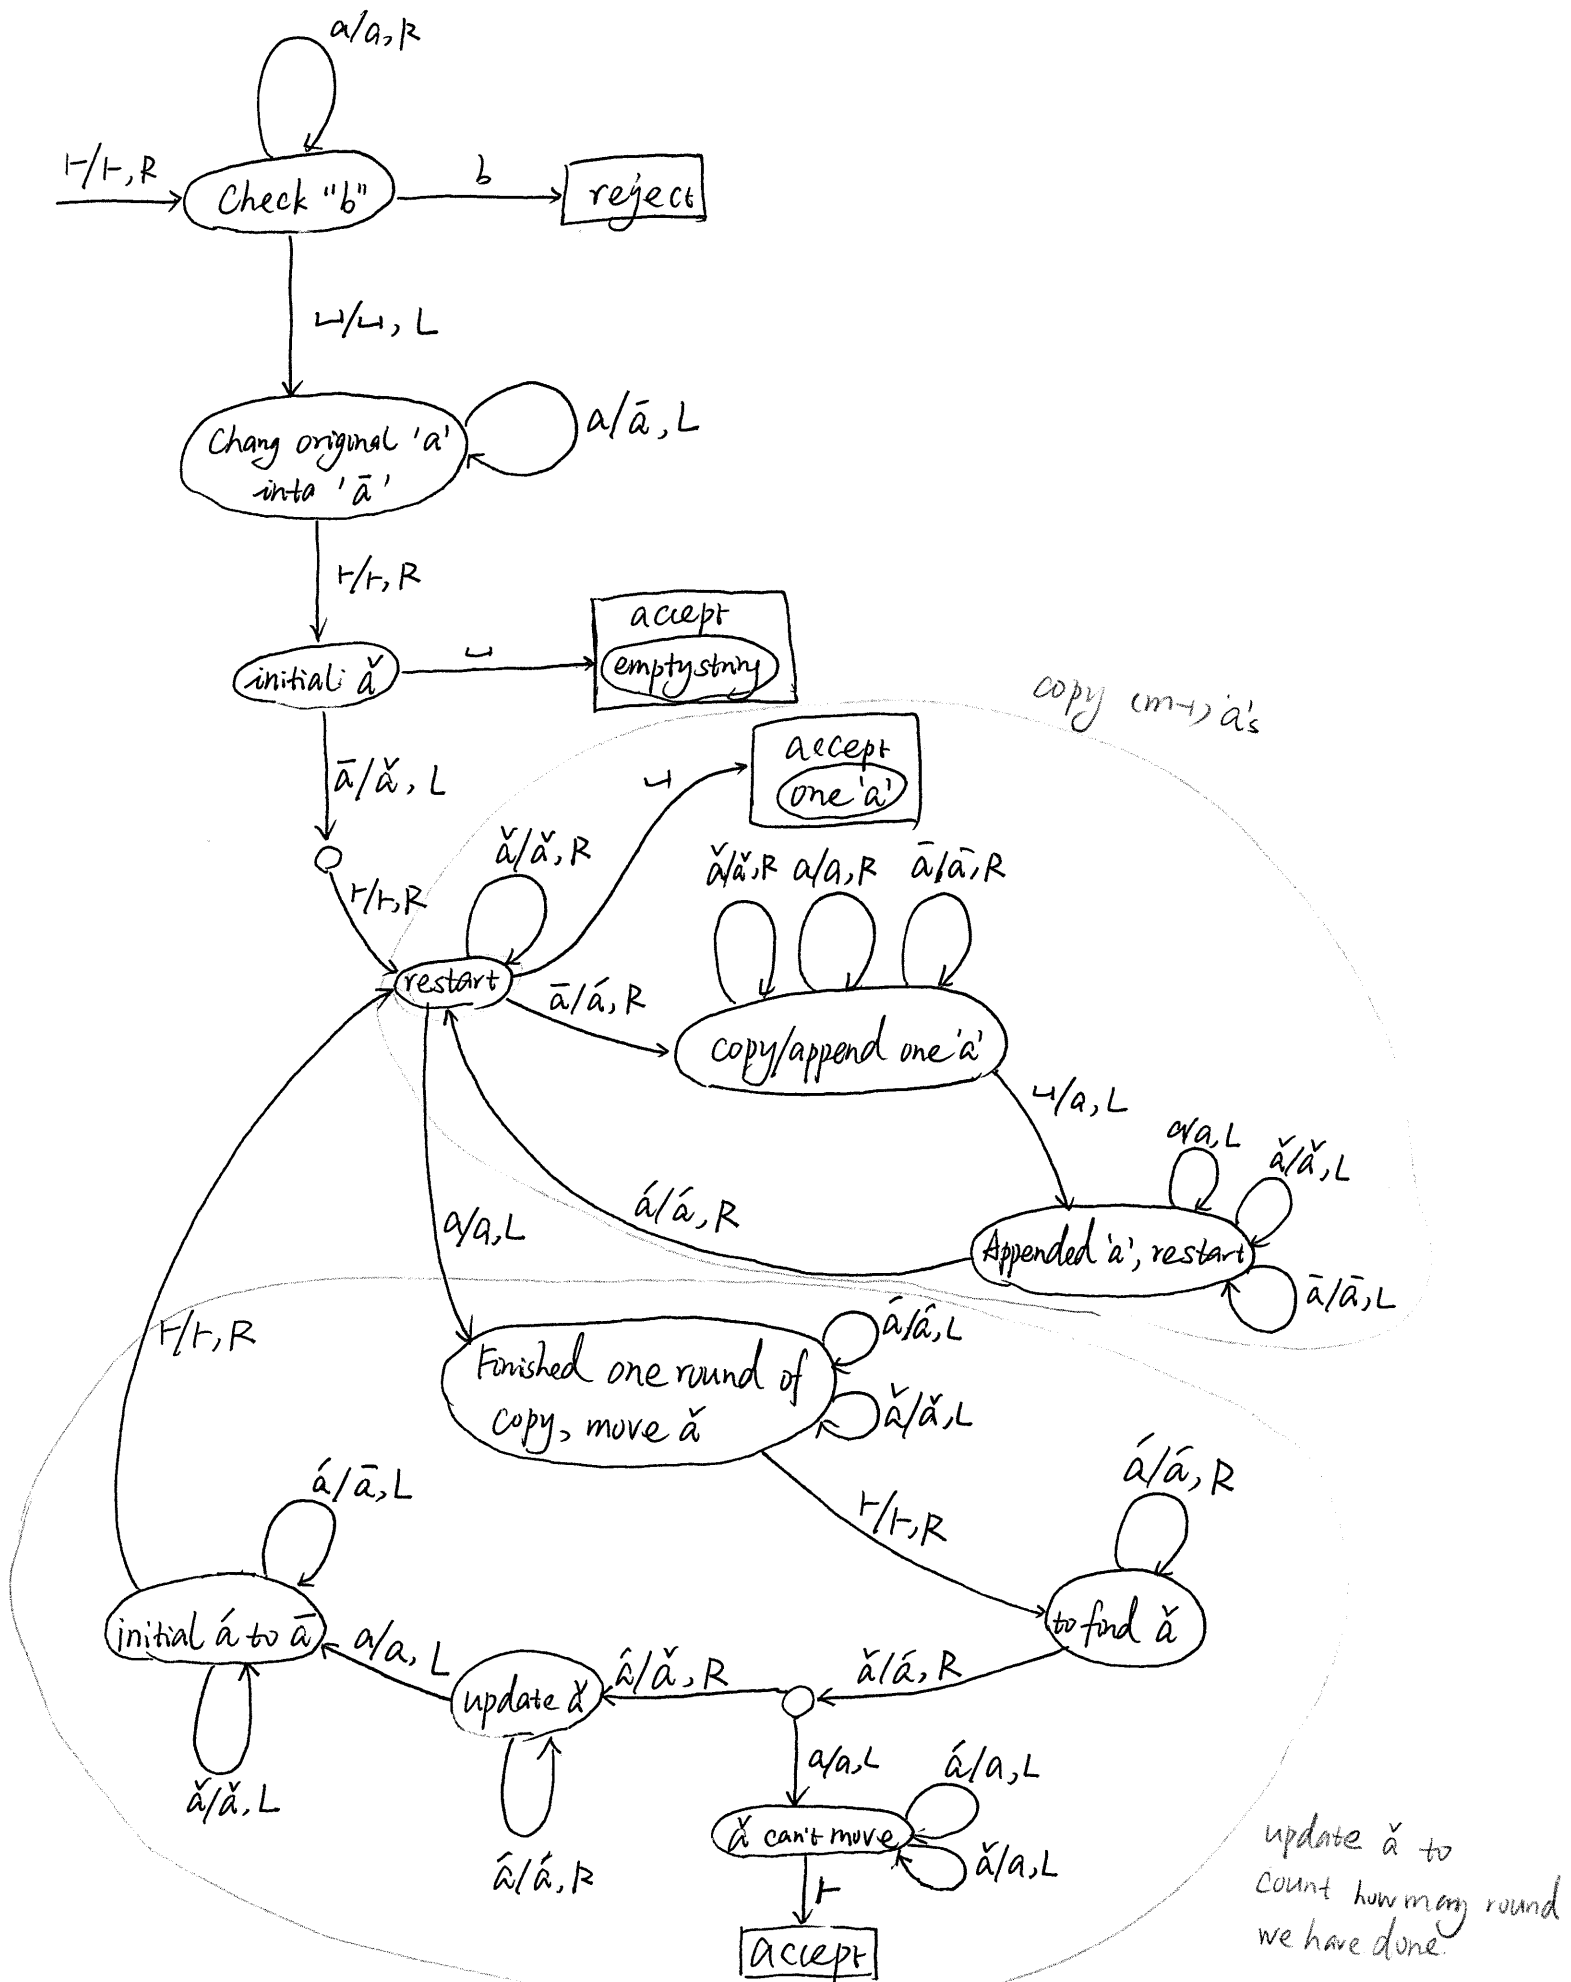 a/a, R
⊢/⊢, R
Check "b"
b
reject
⊔/⊔, L
Chang original 'a'
into 'ā'
a/ā, L
⊢/⊢, R
initial ǎ
⊔
accept
empty string
copy (m-1) a's
ā/ǎ, L
⊔
accept
one 'a'
⊢/⊢, R
ǎ/ǎ, R
ǎ/ǎ, R
a/a, R
ā/ā, R
restart
ā/á, R
copy/append one 'a'
⊔/a, L
a/a, L
ǎ/ǎ, L
á/á, R
a/a, L
Appended 'a', restart
ā/ā, L
⊢/⊢, R
Finished one round of
copy, move ǎ
á/á, L
ǎ/ǎ, L
⊢/⊢, R
á/á, R
á/ā, L
initial á to ā
a/a, L
update ǎ
á/ǎ, R
ǎ/á, R
to find ǎ
ǎ/ǎ, L
á/á, R
a/a, L
á/a, L
ǎ can't move
ǎ/a, L
⊢
accept
update ǎ to
count how many round
we have done.